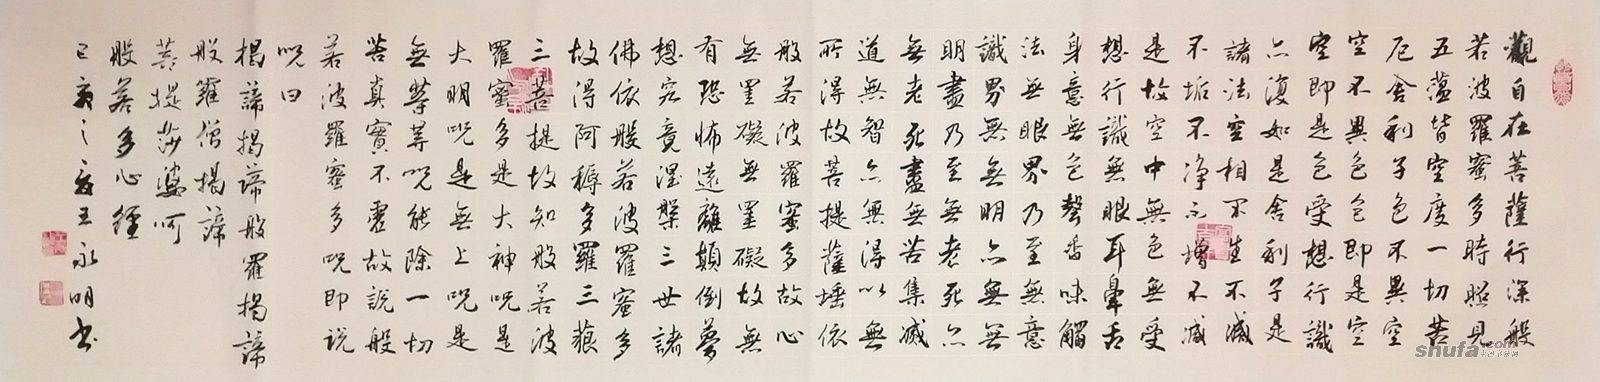 觀自在菩薩行深般
若波羅蜜多時照見
五蕴皆空度一切苦
厄舍利子色不異空
空不異色色即是空
空即是色受想行識
亦復如是舍利子是
諸法空相不生不滅
不垢不净不增不减
是故空中無色無受
想行識無眼耳鼻舌
身意無色聲香味觸
法無眼界乃至無意
識界無無明亦無無
明盡乃至無老死亦
無老死盡無苦集滅
道無智亦無得以無
所得故菩提薩埵依
般若波羅蜜多故心
無罣礙無罣礙故無
有恐怖遠離顛倒夢
想究竟涅槃三世諸
佛依般若波羅蜜多
故得阿耨多羅三藐
三菩提故知般若波
羅蜜多是大神呪是
大明呪是無上呪是
無等等呪能除一切
苦真實不虛故説般
若波羅蜜多呪即説
呪曰
揭諦揭諦般羅揭諦
般羅僧揭諦
菩提莎婆呵
般若多心經
己亥之夏王永明书
shufa.com